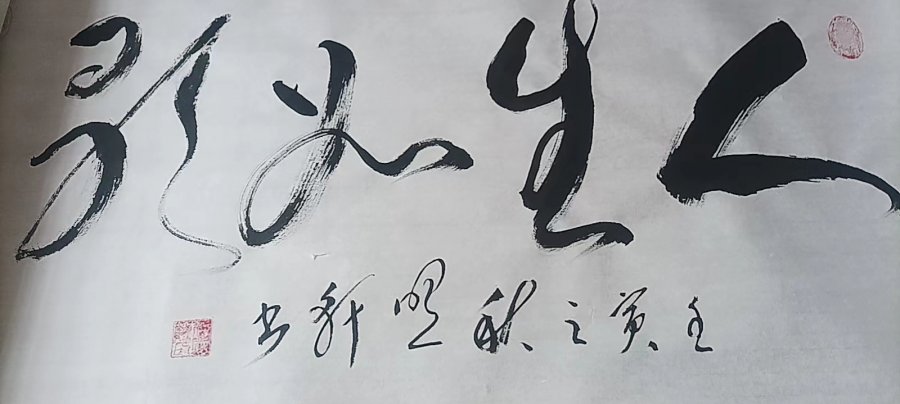 人生如歌
壬寅之秋 明轩书